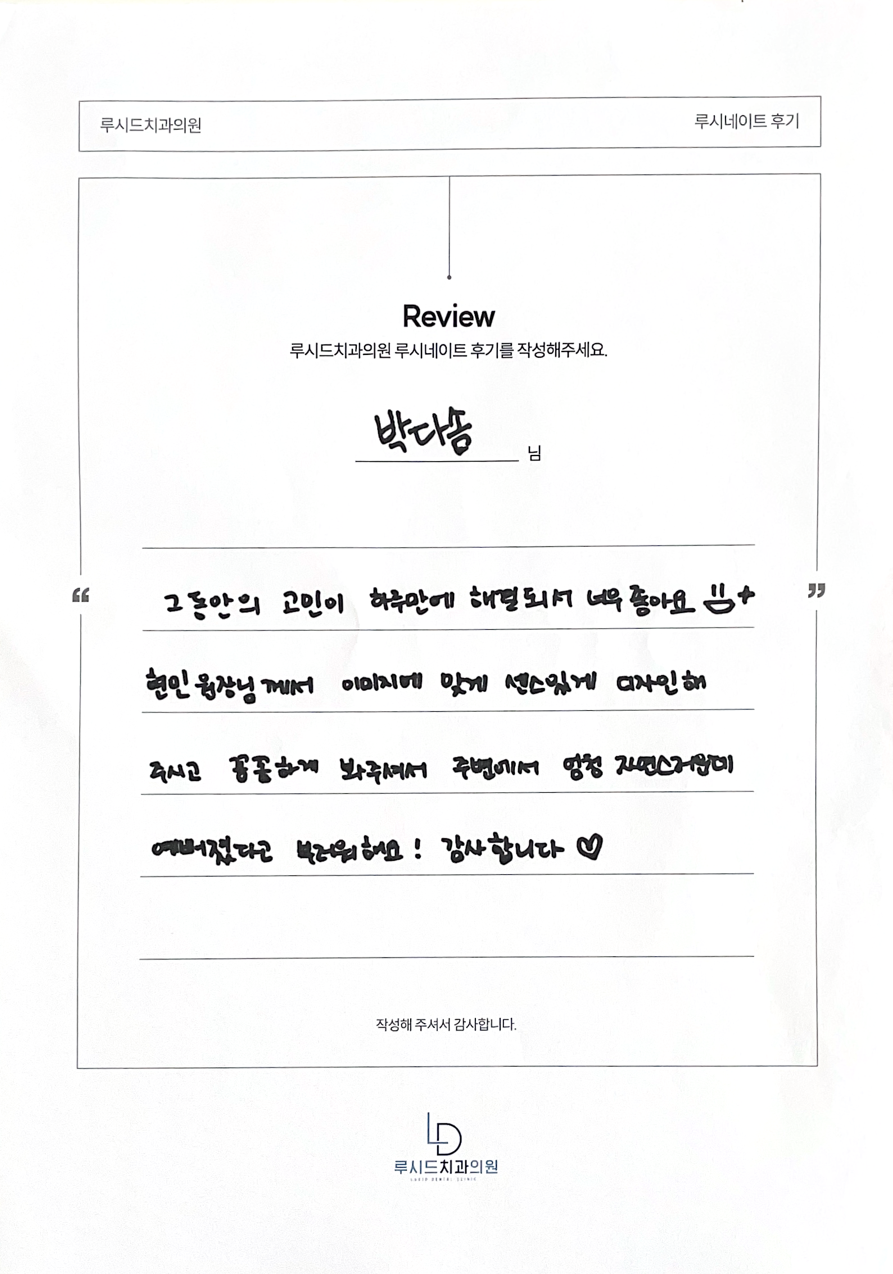 루시드치과의원
루시네이트 후기
Review
루시드치과의원 루시네이트 후기를 작성해주세요.
박다솜 님
“ 그동안의 고민이 하루만에 해결되서 너무 좋아요 ”
현민원장님께서 이미지에 맞게 센스있게 디자인해
주시고 꼼꼼하게 봐주셔서 주변에서 엄청 자연스러운데
예뻐졌다고 부러워해요! 감사합니다 ♡
작성해 주셔서 감사합니다.
LD
루시드치과의원
LUCID DENTAL CLINIC